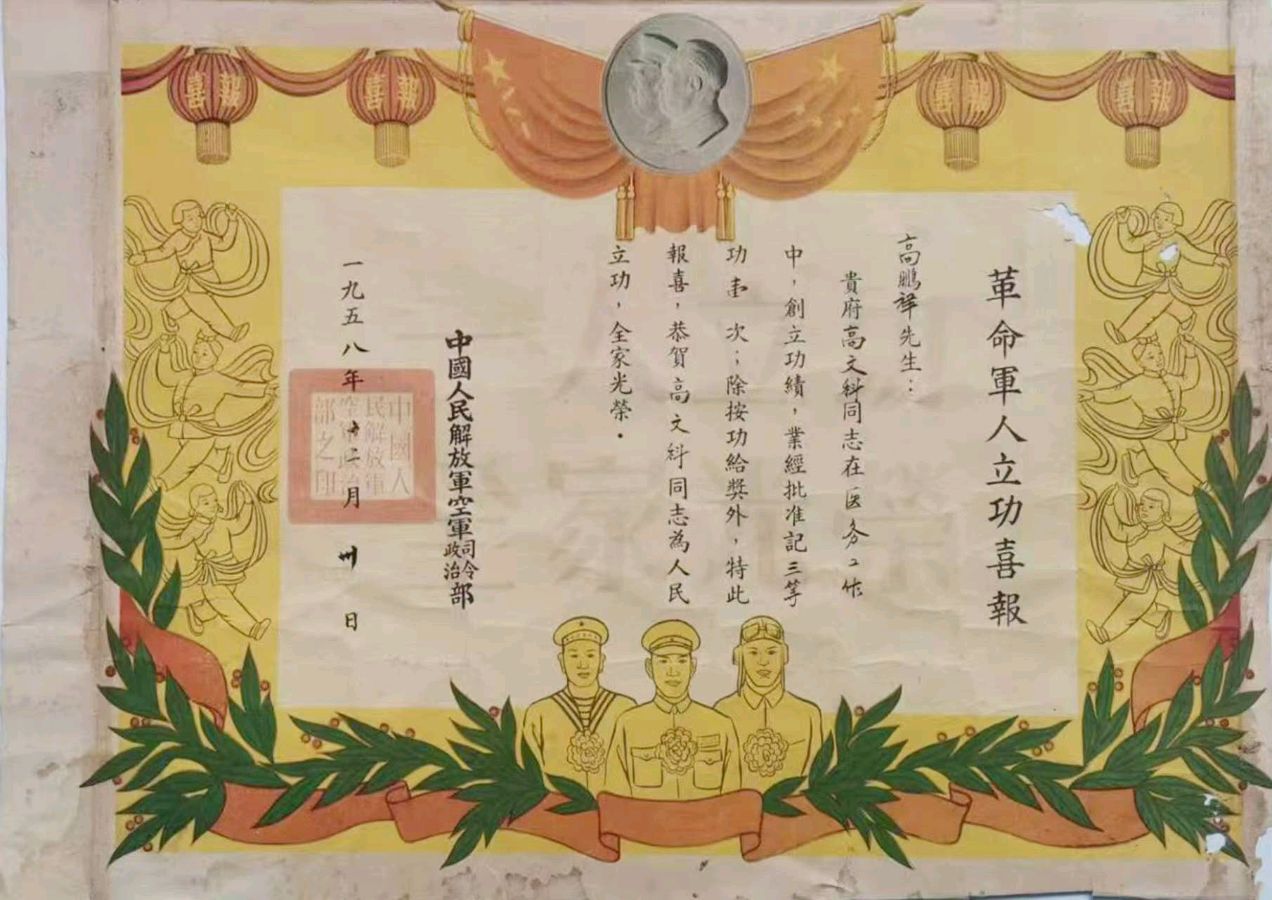 喜報
喜報
喜報
喜報
革命軍人立功喜報
高鵬祥先生：
貴府高文科同志在医务工作
中，創立功績，業經批准記三等
功壹次；除按功給獎外，特此
報喜，恭賀高文科同志為人民
立功，全家光榮．
中國人民解放軍空軍司令政治部
一九五八年十二月卅日
中國人
民解放軍
空軍政治
部之印